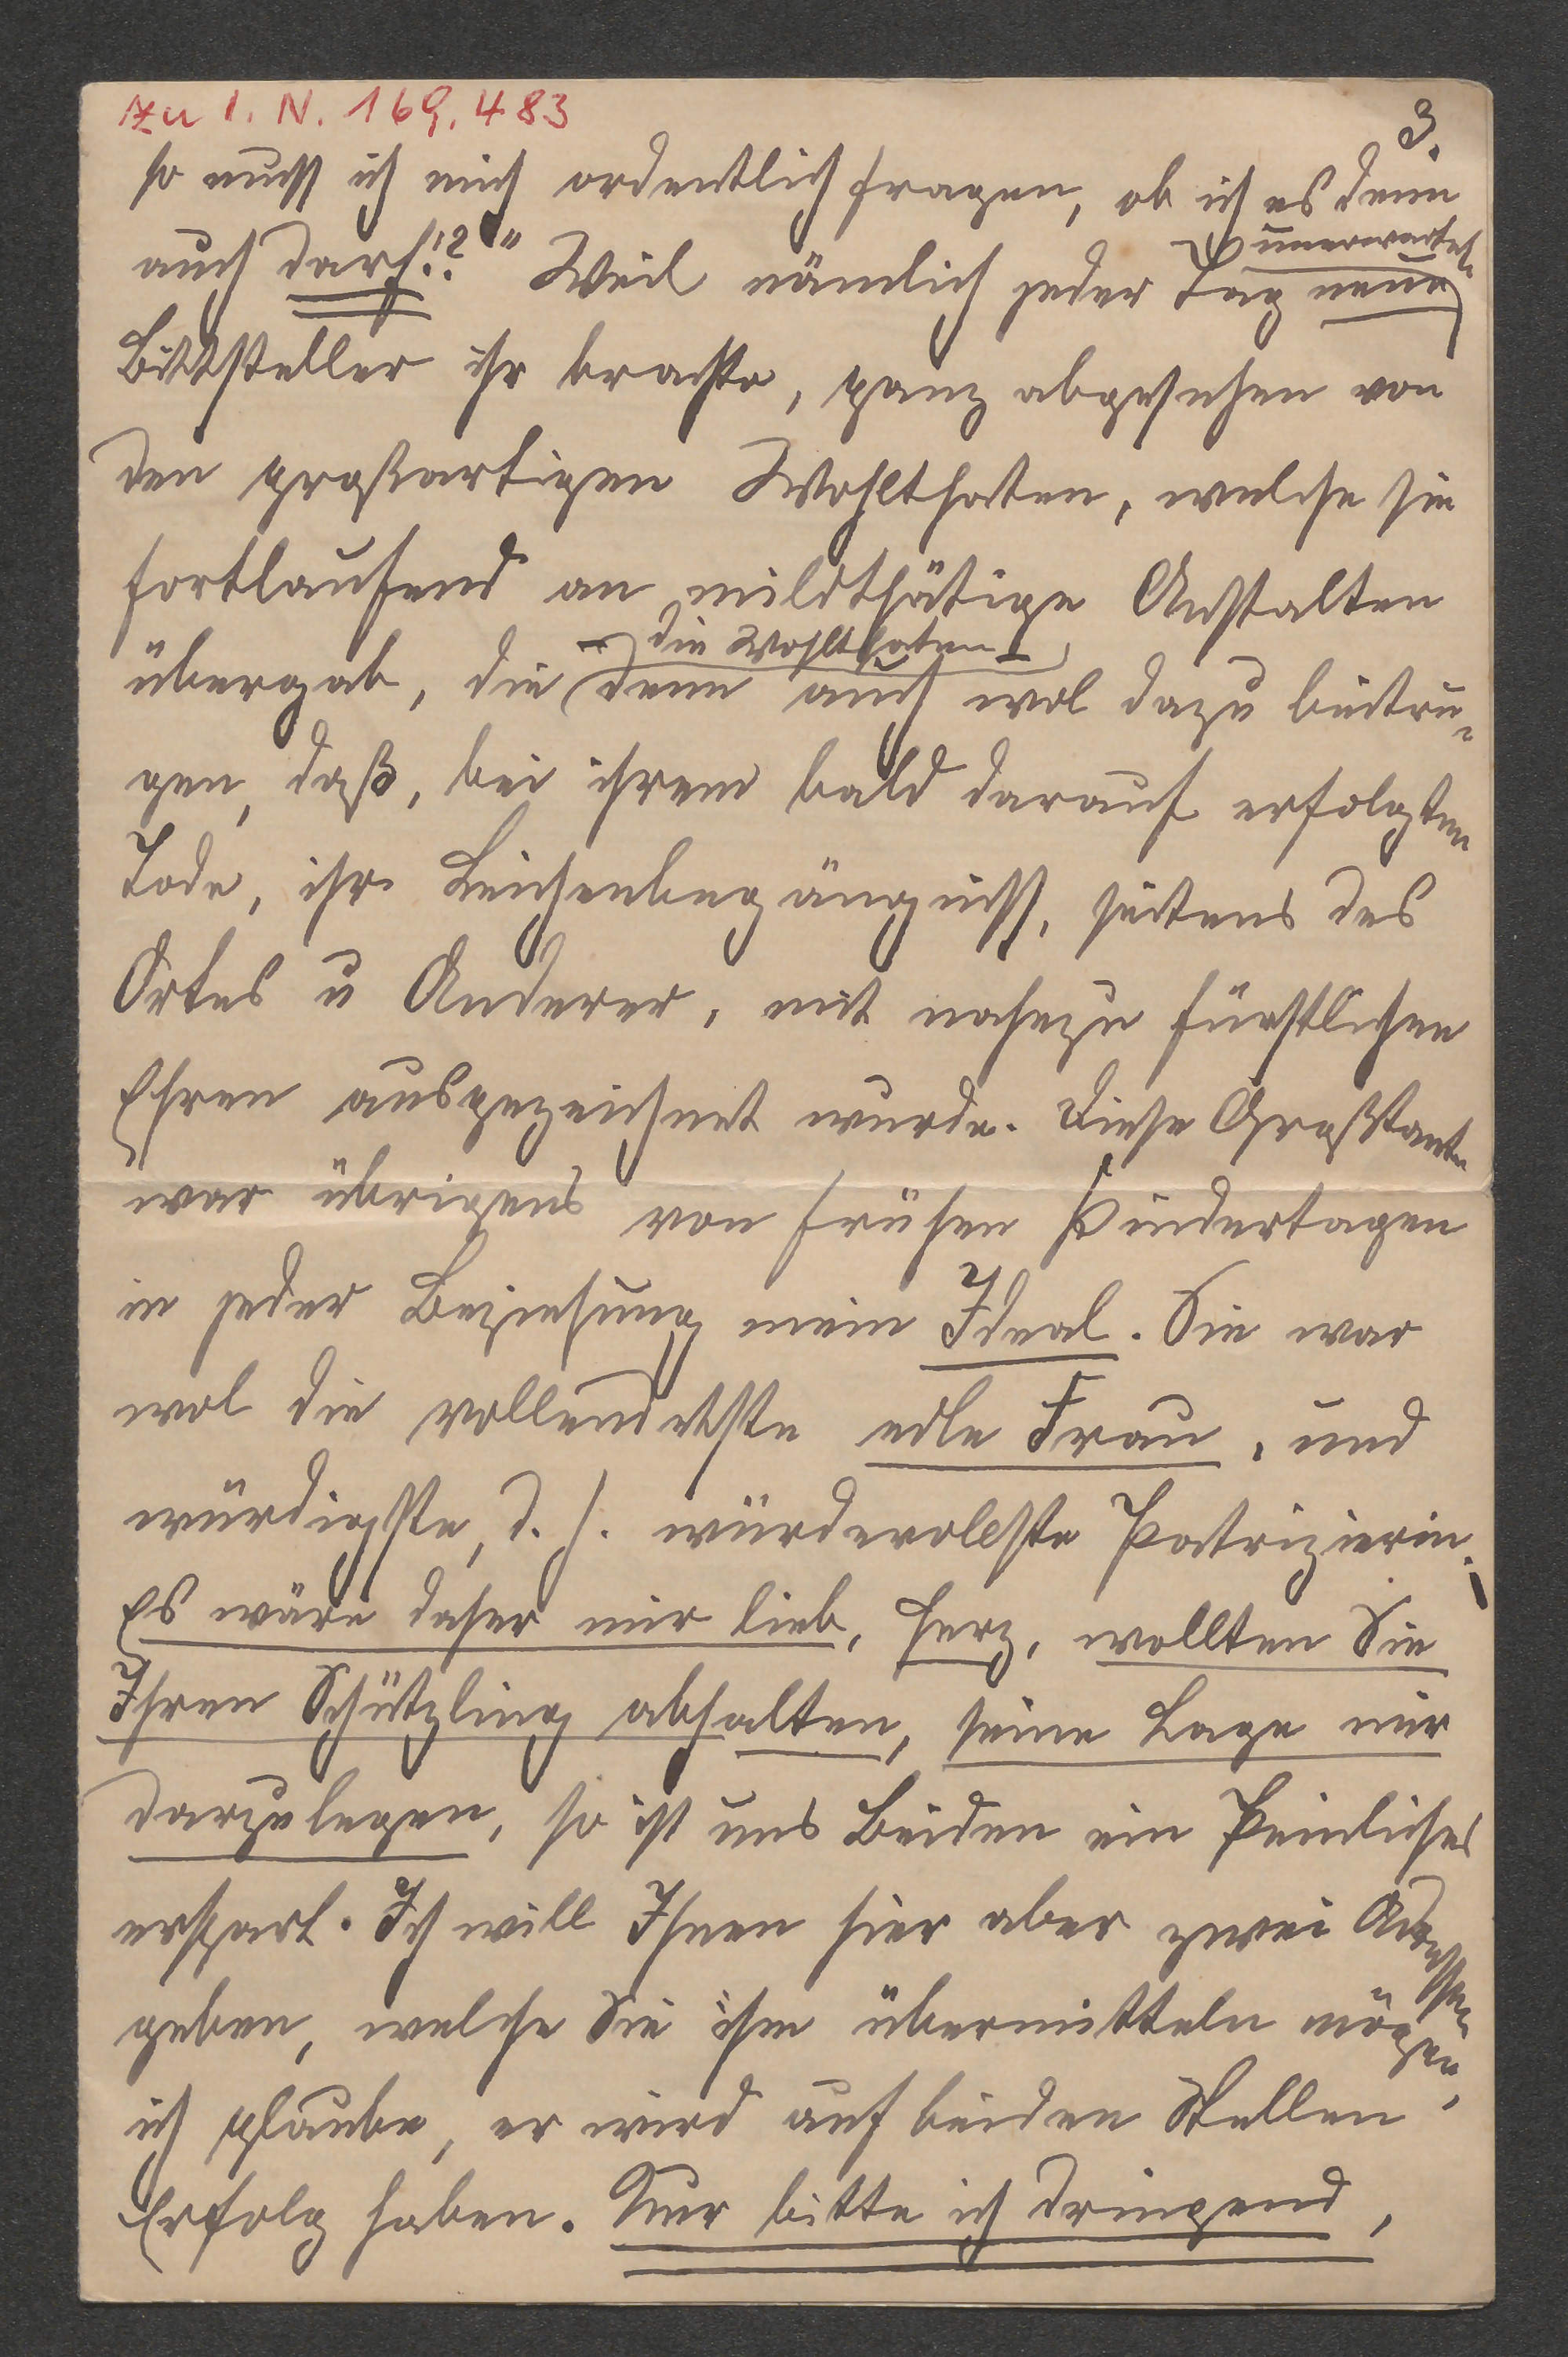 zu I. N. 169.483
3.
so muss ich mich ordentlich fragen, ob ich es denn
auch darf!?" Weil nämlich jeder Tag neue
unerwartete
Bittsteller ihr brachte, ganz abgesehen von
den großartigen Wohlthaten, welche sie
fortlaufend an mildthätige Anstalten
übergab, die denn auch wol dazu beitru-
– die Wohlthaten –
gen, daß, bei ihrem bald darauf erfolgten
Tode, ihr Leichenbegängniss, seitens des
Ortes u Anderer, mit nahezu fürstlichen
Ehren ausgezeichnet wurde. Diese Großtante
war übrigens von frühen Kindertagen
in jeder Beziehung mein Ideal. Sie war
wol die vollendetste edle Frau, und
würdigste, d. h. würdevollste Patrizierin.
Es wäre daher mir lieb, Herz, wollten Sie
Ihren Schützling abhalten, seine Lage mir
darzulegen, so ist uns Beiden ein Peinliches
erspart. Ich will Ihnen hier aber zwei Adressen
geben, welche Sie ihm übermitteln mögen,
ich glaube, er wird auf beiden Stellen
Erfolg haben. Nur bitte ich dringend,